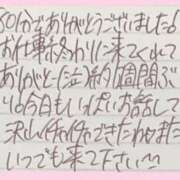 60分でありがとうございました!
お仕事終わりに来てくれて
ありがと(泣)約1週間ぶ
り今日もいっぱいお話して
沢山イチャイチャできたねまた
いつでも来て下さい^^